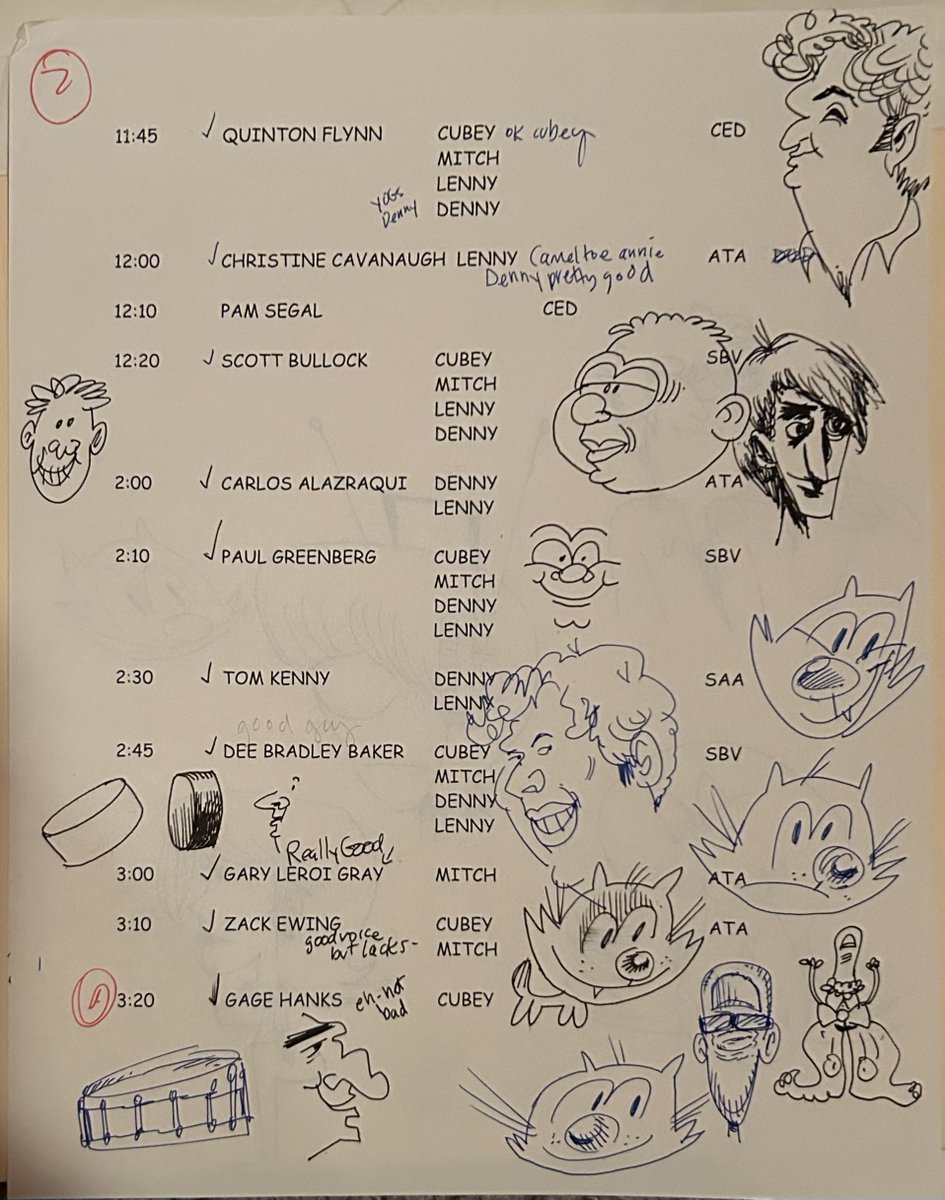 2
11:45 ✓ QUINTON FLYNN CUBEY ok cubey CED
MITCH
LENNY
Denny DENNY
12:00 ✓ CHRISTINE CAVANAUGH LENNY Cameltoe annie ATA
Denny pretty good
12:10 PAM SEGAL CED
12:20 ✓ SCOTT BULLOCK CUBEY SBV
MITCH
LENNY
DENNY
2:00 ✓ CARLOS ALAZRAQUI DENNY ATA
LENNY
2:10 ✓ PAUL GREENBERG CUBEY SBV
MITCH
DENNY
LENNY
2:30 ✓ TOM KENNY DENNY SAA
LENNY
good guy
2:45 ✓ DEE BRADLEY BAKER CUBEY SBV
MITCH
DENNY
LENNY
Really Good
3:00 ✓ GARY LEROI GRAY MITCH ATA
3:10 ✓ ZACK EWING CUBEY ATA
good voice MITCH
but lacks-
3:20 ✓ GAGE HANKS eh-not CUBEY
bad